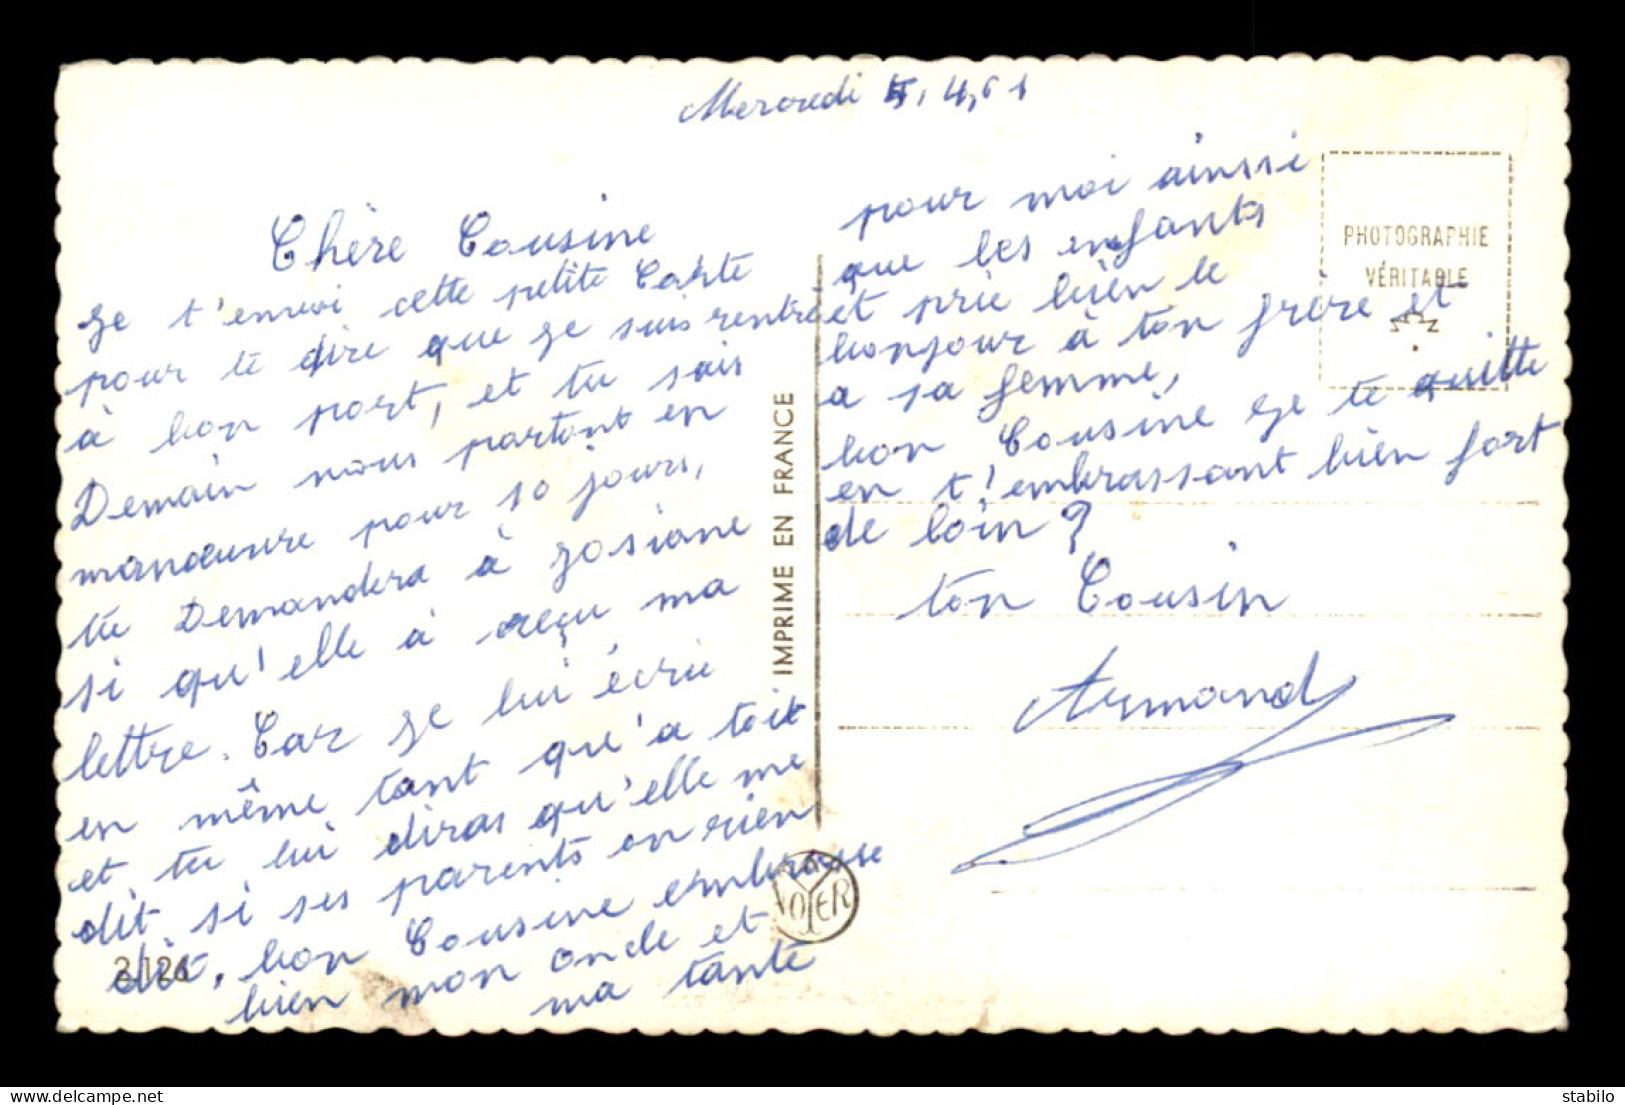 Mercredi 5.4,61
Chère Cousine
Je t'envoi cette petite Carte
pour te dire que je suis rentré
à bon port, et tu sais
Demain nous partont en
manœuvre pour 10 jours,
tu Demandera à Josiane
si qu'elle à reçu ma
lettre. Car je lui écrie
en même tant qu'a toit
et tu lui diras qu'elle me
dit si ses parents on rien
dit, bon Cousine embrasse
bien mon oncle et
ma tante
pour moi ainssi
que les enfants
et prie bien le
bonjour à ton frère et
a sa femme,
bon Cousine je te quitte
en t'embrassant bien fort
de loin ?
ton Cousin
Armand
PHOTOGRAPHIE
VÉRITABLE
IMPRIME EN FRANCE
YOYER
2/126
delcampe.net
stabilo